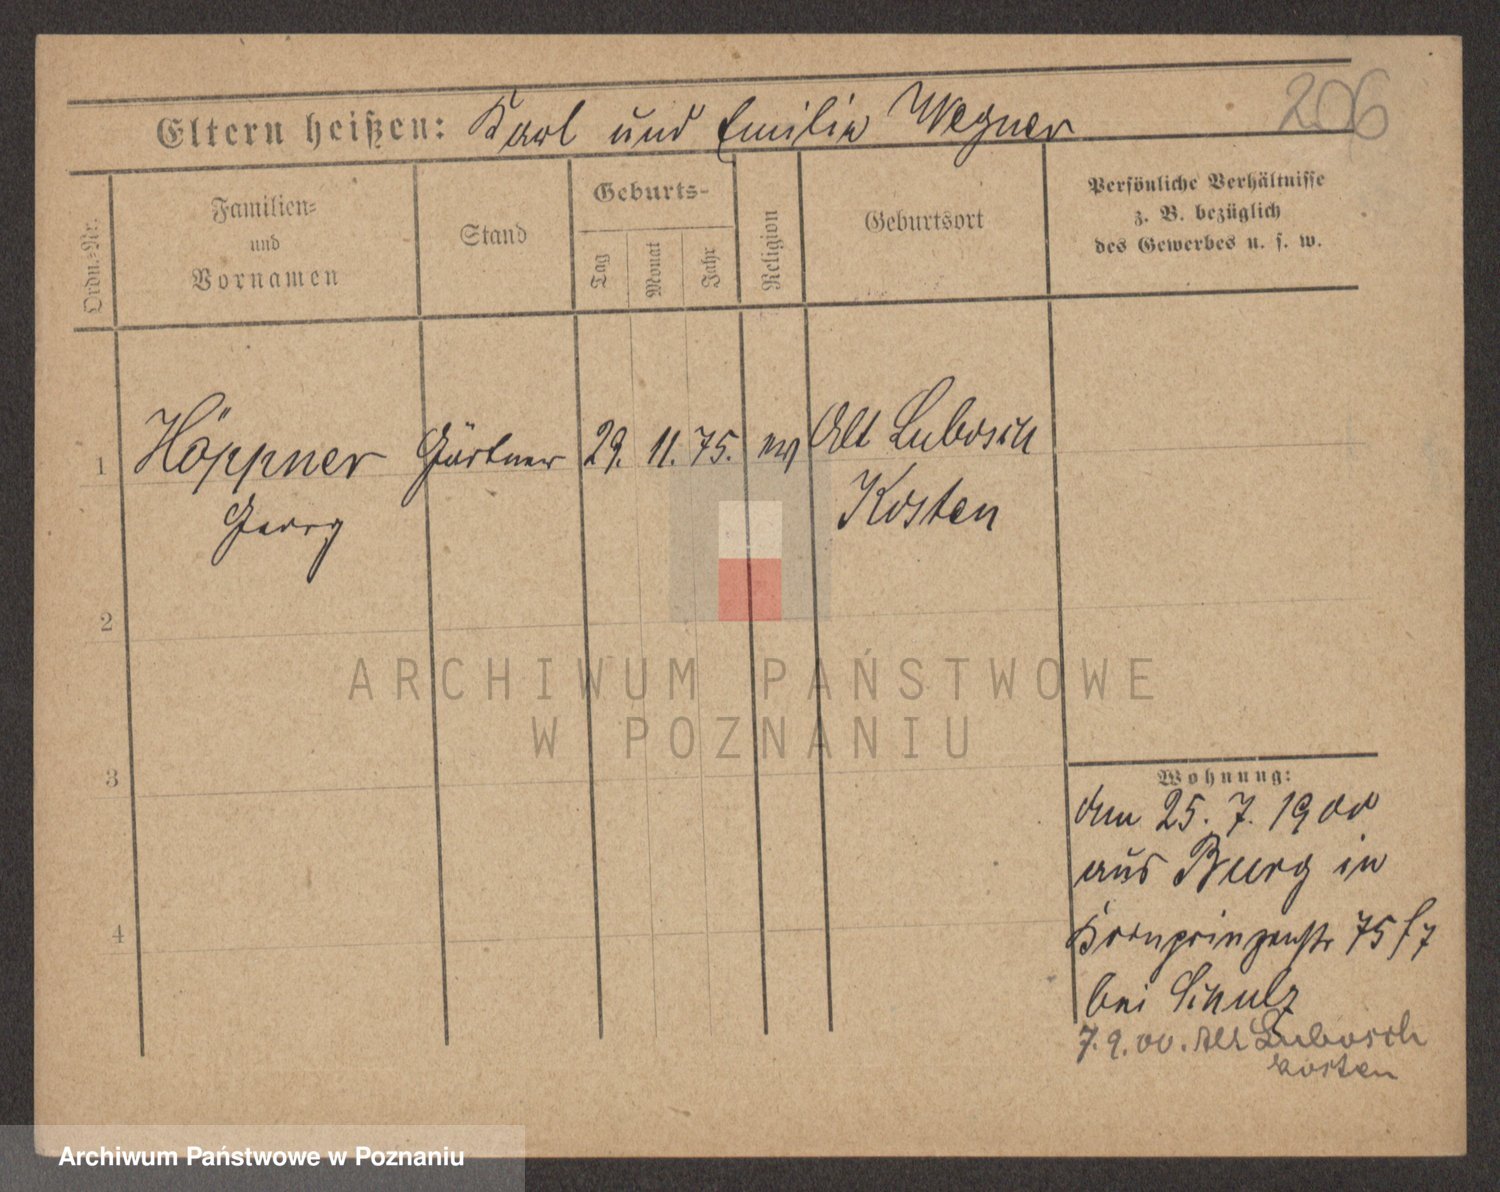 206
Eltern heißen: Karl und Emilie Wegner
Ordn.-Nr.
Familien-
und
Vornamen
Stand
Geburts-
Tag
Monat
Jahr
Religion
Geburtsort
Persönliche Verhältnisse
z. B. bezüglich
des Gewerbes u. s. w.
1 Höppner Gärtner 29. 11. 75. ev Alt Lubosch
Georg Kosten
2
3
4
Wohnung:
den 25. 7. 1900
aus Burg in
Kronprinzenstr 75
bei Schulz
7. 9. 00. Alt Lubosch
Kosten
ARCHIWUM PAŃSTWOWE
W POZNANIU
Archiwum Państwowe w Poznaniu